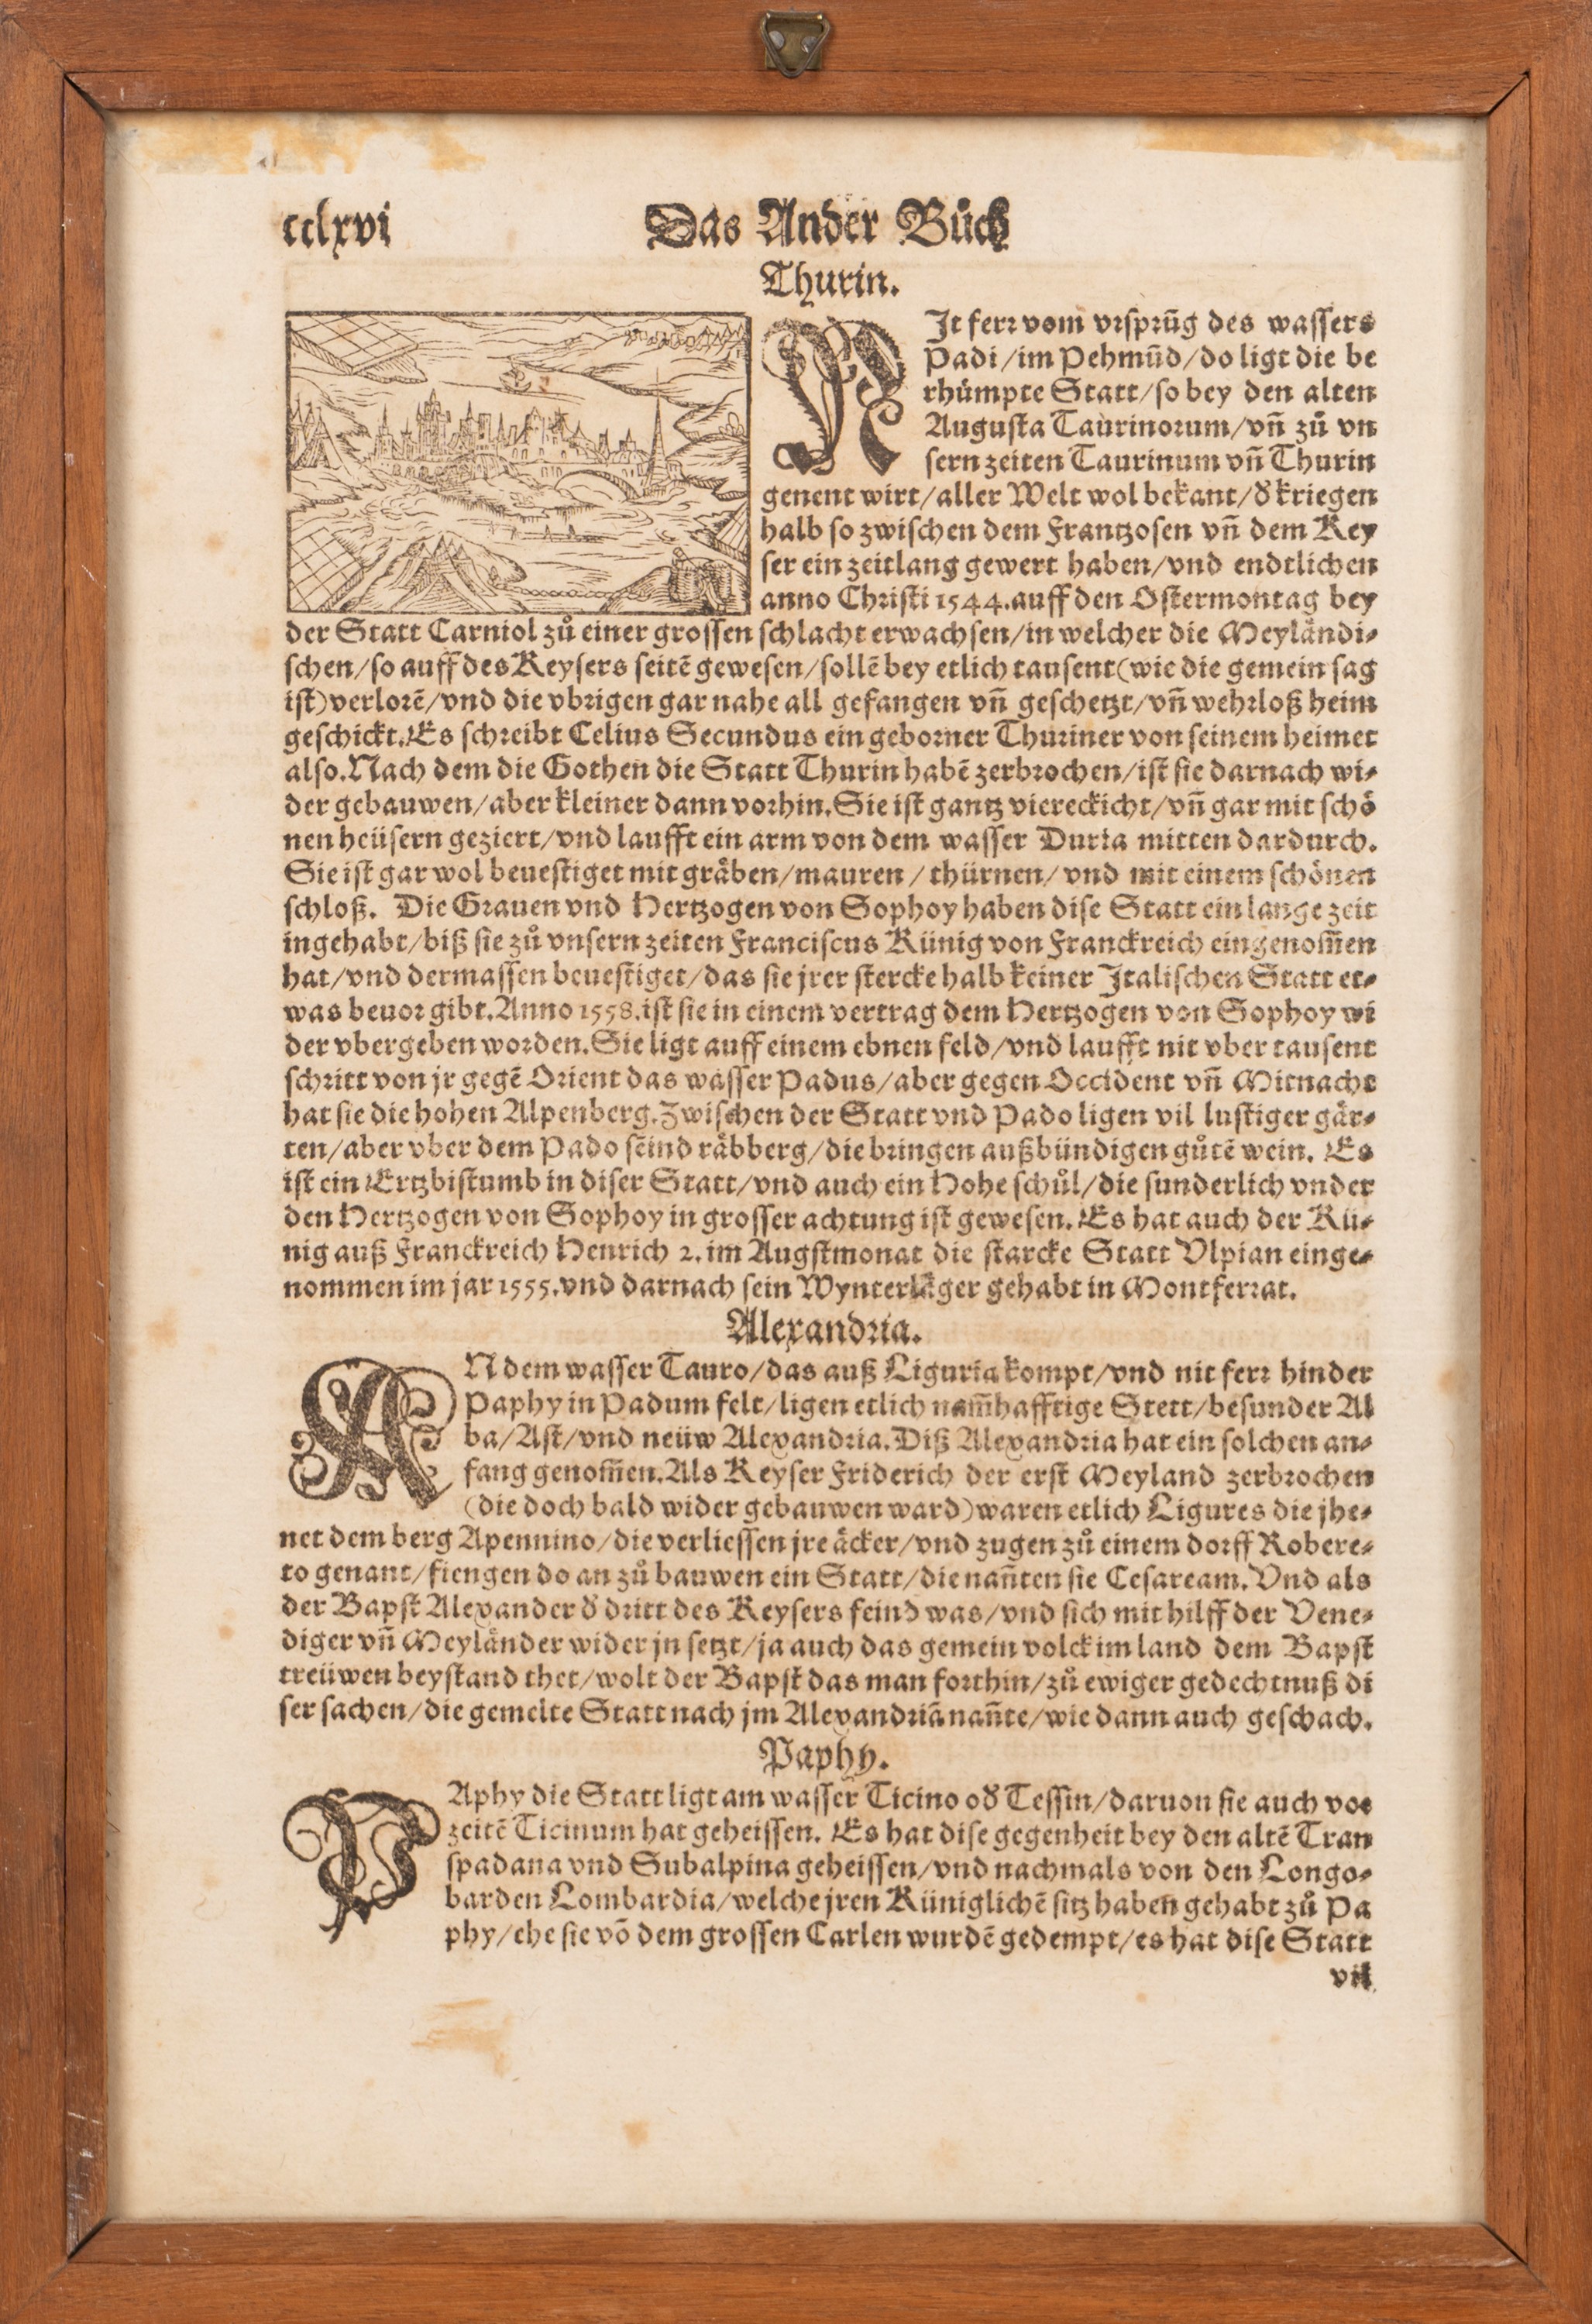 cclxvi
Das Ander Bůch
Thurin.
NIt ferꝛ vom vꝛspꝛūg des wassers
Padi/im Pehmūd/do ligt die be
rhümpte Statt/so bey den alten
Augusta Taurinoꝛum/vñ zů vn
sern zeiten Taurinum vñ Thurin
genent wirt/aller Welt wol bekant/d̕ kriegen
halb so zwischen dem Frantzosen vñ dem Key
ser ein zeitlang gewert haben/vnd endtlichen
anno Chꝛisti 1544.auff den Ostermontag bey
der Statt Carniol zů einer grossen schlacht erwachsen/in welcher die Meylåndi⸗
schen/so auff des Keysers seitē gewesen/sollē bey etlich tausent(wie die gemein sag
ist)verloꝛē/vnd die vbꝛigen gar nahe all gefangen vñ geschetzt/vñ wehꝛloß heim
geschickt.Es schꝛeibt Celius Secundus ein geboꝛner Thuriner von seinem heimet
also.Nach dem die Gothen die Statt Thurin habē zerbꝛochen/ist sie darnach wi⸗
der gebauwen/aber kleiner dann voꝛhin.Sie ist gantz viereckicht/vñ gar mit schö
nen heüsern geziert/vnd laufft ein arm von dem wasser Duria mitten dardurch.
Sie ist gar wol beuestiget mit gråben/mauren/ thürnen/ vnd mit einem schönen
schloß. Die Grauen vnd Hertzogen von Sophoy haben dise Statt ein lange zeit
ingehabt/biß sie zů vnsern zeiten Franciscus Künig von Franckreich eingenom̄en
hat/vnd dermassen beuestiget/das sie jrer stercke halb keiner Italischen Statt et⸗
was beuoꝛ gibt.Anno 1558.ist sie in einem vertrag dem Hertzogen von Sophoy wi
der vbergeben woꝛden.Sie ligt auff einem ebnen feld/vnd laufft nit vber tausent
schꝛitt von jr gegē Oꝛient das wasser Padus/aber gegen Occident vñ Mitnacht
hat sie die hohen Alpenberg.Zwischen der Statt vnd Pado ligen vil lustiger går⸗
ten/aber vber dem Pado seind råbberg/die bꝛingen außbündigen gůtē wein. Es
ist ein Ertzbistumb in diser Statt/vnd auch ein Hohe schůl/die sunderlich vnder
den Hertzogen von Sophoy in grosser achtung ist gewesen. Es hat auch der Kü⸗
nig auß Franckreich Henrich 2. im Augstmonat die starcke Statt Vlpian einge⸗
nommen im jar 1555.vnd darnach sein Wynterlåger gehabt in Montferꝛat.
Alexandꝛia.
AN dem wasser Tauro/das auß Liguria kompt/vnd nit ferꝛ hinder
Paphy in Padum felt/ligen etlich nam̄hafftige Stett/besunder Al
ba/Ast/vnd neüw Alexandꝛia.Diß Alexandꝛia hat ein solchen an⸗
fang genom̄en.Als Keyser Friderich der erst Meyland zerbꝛochen
(die doch bald wider gebauwen ward)waren etlich Ligures die jhe⸗
net dem berg Apennino/die verliessen jre åcker/vnd zugen zů einem doꝛff Robere⸗
to genant/fiengen do an zů bauwen ein Statt/die nañten sie Cesaream.Vnd als
der Bapst Alexander d̕ dꝛitt des Keysers feind was/vnd sich mit hilff der Vene⸗
diger vñ Meylånder wider jn setzt/ja auch das gemein volck im land dem Bapst
treüwen beystand thet/wolt der Bapst das man foꝛthin/zů ewiger gedechtnuß di
ser sachen/die gemelte Statt nach jm Alexandꝛiā nañte/wie dann auch geschach.
Paphy.
PAphy die Statt ligt am wasser Ticino od̕ Tessin/daruon sie auch voꝛ
zeitē Ticinum hat geheissen. Es hat dise gegenheit bey den altē Tran
spadana vnd Subalpina geheissen/vnd nachmals von den Longo⸗
barden Lombardia/welche jren Küniglichē sitz haben gehabt zů Pa
phy/ehe sie vō dem grossen Carlen wurdē gedempt/es hat dise Statt
vil